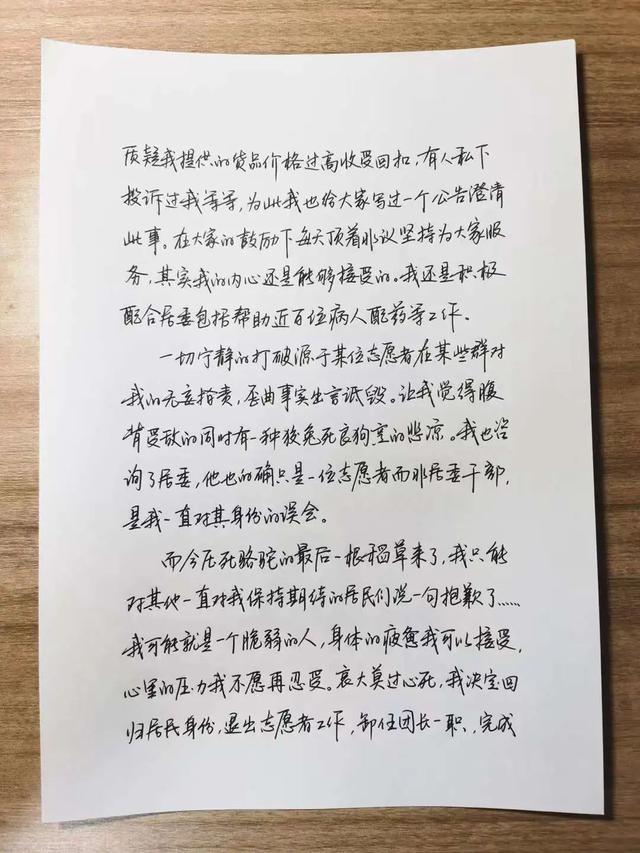 质疑我提供的货品价格过高收受回扣,有人私下
投诉过我等等,为此我也给大家写过一个公告澄清
此事。在大家的鼓励下每天顶着非议坚持为大家服
务,其实我的内心还是能够接受的。我还是积极
配合居委包括帮助近百位病人配药等工作。
一切宁静的打破源于某位志愿者在某些群对
我的无妄指责,歪曲事实出言诋毁。让我觉得腹
背受敌的同时有一种狡兔死良狗烹的悲凉。我也咨
询了居委,他也的确只是一位志愿者而非居委干部,
是我一直对其身份的误会。
而今压死骆驼的最后一根稻草来了,我只能
对其他一直对我保持期待的居民们说一句抱歉了……
我可能就是一个脆弱的人,身体的疲惫我可以接受,
心里的压力我不愿再忍受。哀大莫过心死,我决定回
归居民身份,退出志愿者工作,卸任团长一职,完成